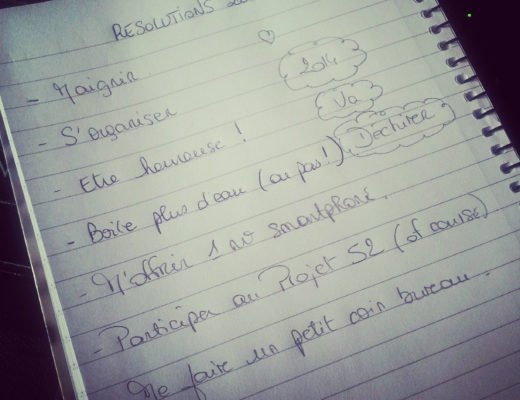 RESOLUTIONS
- Maigrir
2014
- S'organiser
Va
- Etre heureuse !
Déchirer
- Boire plus d'eau (ou pas!)
- M'offrir 1 nv smartphone.
- Participer au Projet 52 (of course)
Me faire un petit coin bureau.